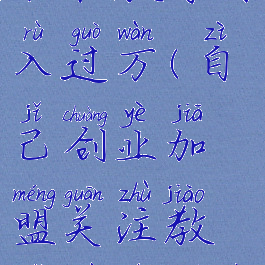 rù guò wàn zì
入过万(自
jǐ chuàng yè jiā
己创业加
méng guān zhù jiào
盟关注教